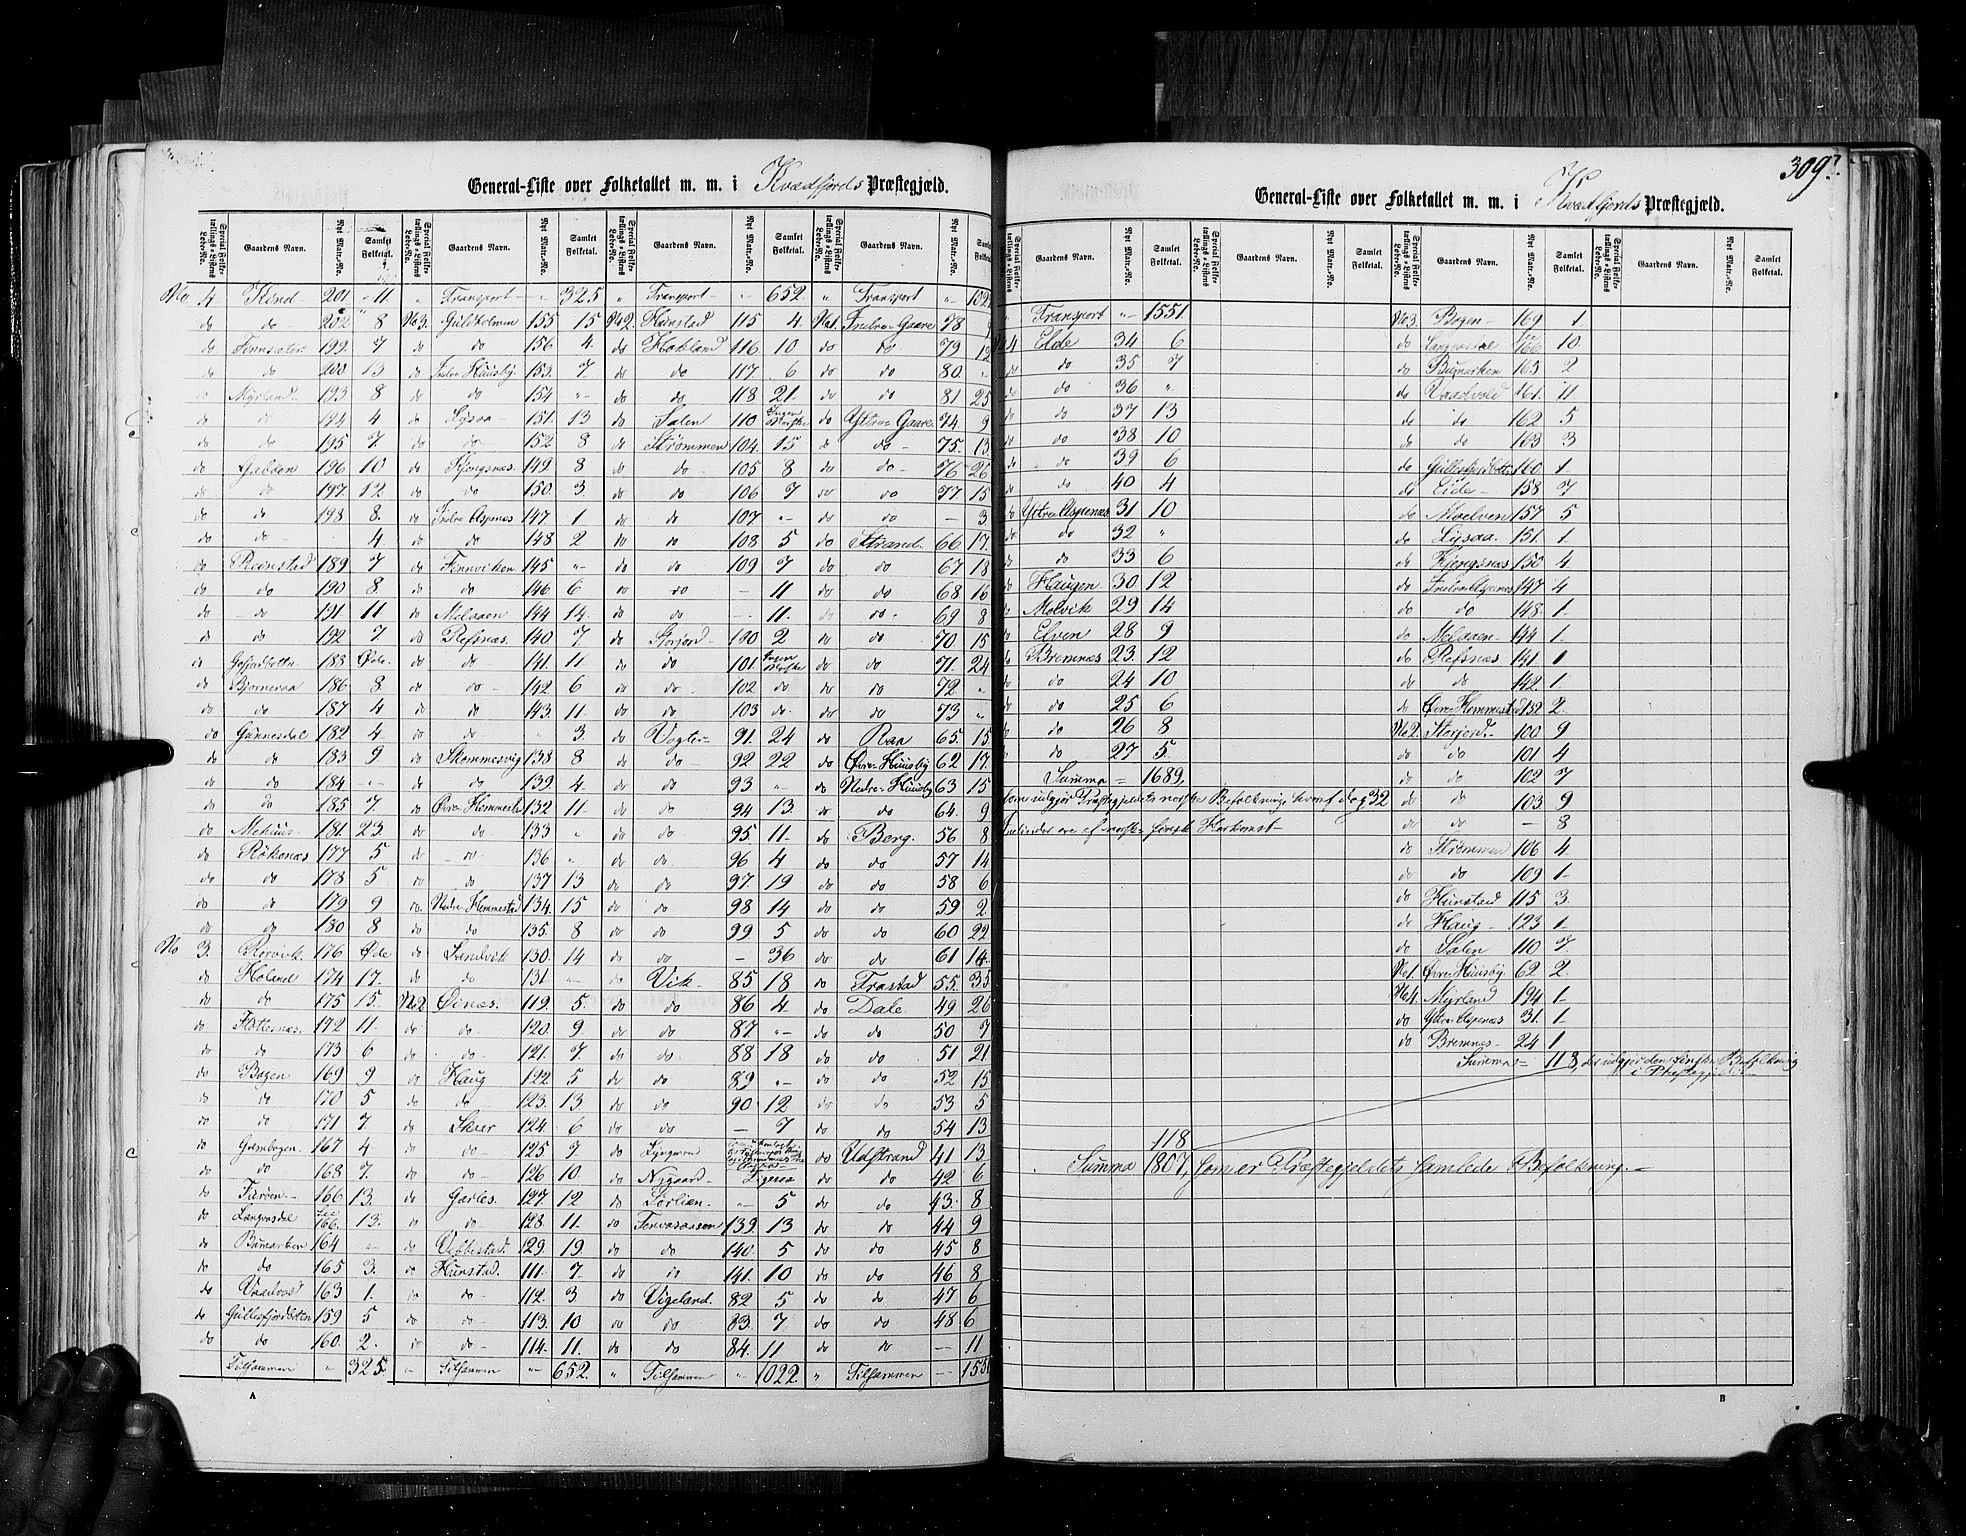 309.
General-Liste over Folketallet m. m. i Kvædfjords Præstegjæld.
Special Folketællings-Listens Løbe-No. Gaardens Navn. Nyt Matr.-No. Samlet Folketal.
No 4 Kind 201 11
do do 202 8
do Finnsæter 199 7
do do 200 13
do Myrland 193 8
do do 194 4
do do 195 7
do Gabøen 196 10
do do 197 12
do do 198 8
do do - 4
do Reinstad 189 7
do do 190 8
do do 191 11
do do 192 7
do Gofjordbotn 188 Øde
do Bjørneraa 186 8
do do 187 4
do Gunnesdal 182 4
do do 183 9
do do 184 "
do do 185 7
do Mehuus 181 23
do Røkenæs 177 5
do do 178 5
do do 179 9
do do 180 8
No 3. Rørvik 176 Øde
do Høland 174 17
do do 175 15
do Flottesnæs 172 11
do do 173 6
do Bogen 169 9
do do 170 5
do do 171 7
do Grambogen 167 4
do do 168 7
do Furøen 166 13
do Langvasdal 166 13
do Bumarken 164 "
do do 165 3
do Vaadvold 163 1
do Gullesfjordbotten 159 5
do do 160 2
Tilsammen " 325
" Transport " 325
No 3. Guldholmen 155 15
do do 156 4
do Indre Huusby 153 7
do do 154 "
do Ligsaa 151 13
do do 152 8
do Kjengsnæs 149 8
do do 150 3
do Indre Aspenæs 147 1
do do 148 2
do Finnviken 145 "
do do 146 6
do Melaaen 144 14
do Refsnæs 140 7
do do 141 11
do do 142 6
do do 143 11
do do " 3
do Skommesvig 138 8
do do 139 4
do Øvre Hemmestad 132 11
do do 133 "
do do 136 "
do do 137 13
do Nedre Hemmestad 134 15
do do 135 8
do Sandvik 130 14
do do 131 "
No 2 Øinæs 119 5
do do 120 9
do do 121 7
do Haug 122 5
do do 123 13
do Skier 124 6
do do 125 7
do do 126 10
do Garies 127 12
do do 128 11
do Vebbestad 129 19
do Hunstad 111 7
do do 112 3
do do 113 10
do do 114 11
" Tilsammen " 652
" Transport " 652
No 2. Hunstad 115 4
do Hokland 116 10
do do 117 6
do do 118 21
do Salen 110 Ingen Norske
do Strømmen 104 15
do do 105 8
do do 106 7
do do 107 "
do do 108 5
do do 109 7
do do - 11
do do - 11
do Storjord 100 2
do do 101 Ingen Norske
do do 102 do
do do 103 do
do Vogter 91 24
do do 92 22
do do 93 "
do do 94 13
do do 95 11
do do 96 4
do do 97 19
do do 98 14
do do 99 5
do do - 36
do Vik 85 18
do do 86 4
do do 87 "
do do 88 18
do do 89 "
do do 90 12
do do - 7
do Lyngmoen
do Nygaard
do Sørlien " 5
do 139 13
do do 140 5
do do 141 10
do Vigeland 82 5
do do 83 7
do do 84 11
" Tilsammen " 1022
" Transport "
No 1. Indre Gaare 78
do do 79 12
do do 80 "
do do 81 25
do Ystre Gaare 74 9
do do 75 13
do do 76 26
do do 77 15
do do - 3
do Strand 66 17
do do 67 18
do do 68 16
do do 69 8
do do 70 15
do do 71 24
do do 72 "
do do 73 "
do Raa 65 15
do Øvre Huusby 62 17
do Nedre Huusby 63 15
do do 64 9
do Berg 56 8
do do 57 14
do do 58 6
do do 59 2
do do 60 22
do do 61 14
do Trastad 55 35
do Dale 49 26
do do 50 7
do do 51 21
do do 52 15
do do 53 5
do do 54 13
do Udstrand 41 13
do do 42 6
do do 43 8
do do 44 9
do do 45 8
do do 46 8
do do 47 6
do do 48 6
do do - 11
" Tilsammen -
A
General-Liste over Folketallet m. m. i Kvædfjords Præstegjæld.
Gaardens Navn. Nyt Matr.-No. Samlet Folketal.
" Transport " 1551
No 4 Elde 34 6
do do 35 7
do do 36 "
do do 37 13
do do 38 10
do do 39 6
do do 40 4
do Ystre Aspenæs 31 10
do do 32 "
do do 33 6
do Haugen 30 12
do Molvik 29 14
do Elven 28 9
do Bremnæs 23 12
do do 24 10
do do 25 6
do do 26 8
do do 27 5
Summa = 1689
som udgjør Præstegjeldets norske Befolkning, hvoraf dog 32
Individer ere af norsk finsk Herkomst
118
Summa 1807, som er Præstegjeldets samlede Befolkning.
No 3. Bogen 169 1
do Langvasdal 166 10
do Bumarken 165 2
do Vaadvold 161 11
do do 162 5
do do 163 3
do Gullesfjordbotten 160 1
do Eide 158 7
do Moelven 157 5
do Ligsaa 151 1
do Kjengsnæs 150 4
do Indre Aspenæs 147 4
do do 148 1
do Melaaen 144 1
do Refsnæs 141 1
do do 142 1
do Øvre Hemmestad 132 2
No 2. Storjord 100 9
do do 101 4
do do 102 7
do do 103 9
do do - 8
do Strømmen 106 4
do do 109 1
do Hunstad 115 3
do Haug 123 1
do Salen 110 7
No 1. Øvre Huusby 62 2
No 4. Myrland 194 1
do Ystre Aspenæs 31 1
do Bremnæs 24 1
Summa 118, der udgjør den finske Befolkning
i Præstegjeldet
B